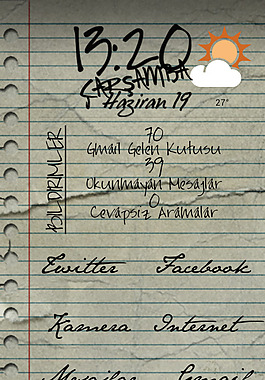 13:20
ÇARŞAMBA
Haziran 19
27°
BİLDİRİMLER
70
Gmail Gelen Kutusu
39
Okunmayan Mesajlar
0
Cevapsız Aramalar
Twitter Facebook
Kamera Internet
Mesajlar Gmail